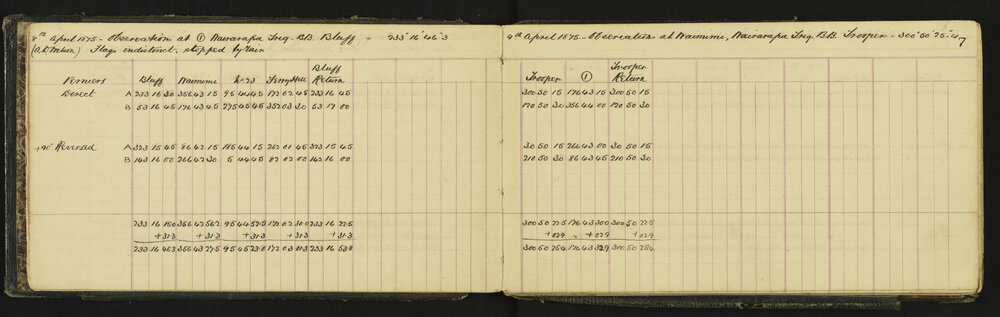 8th April 1875 - Observation at ① Wairarapa Trig. BB. Bluff - 233° 16' 46"3
Flags indistinct, stopped by rain
Bluff Waimimi Ferry Hill Bluff Return
Direct A 233 16 30 356 43 15 95 44 45 172 02 45 233 16 45
B 53 16 45 176 43 45 275 45 45 352 03 30 53 17 00
+90° Reversed A 323 15 45 86 42 15 185 44 15 262 01 45 323 15 45
B 143 16 00 266 42 30 5 44 45 82 02 00 143 16 00
233 16 15.0 356 42 56.2 95 44 52.5 172 02 30.0 233 16 22.5
+31.3 +31.3 +31.3 +31.3 +31.3
233 16 46.3 356 43 27.5 95 45 23.8 172 03 01.3 233 16 53.8
9th April 1875 - Observation at Waimimi, Wairarapa Trig. BB. Trooper - 300° 50' 25".47
Trooper ① Trooper Return
300 50 15 176 43 15 300 50 15
120 50 30 356 44 00 120 50 30
30 50 15 266 43 00 30 50 15
210 50 30 86 43 45 210 50 30
300 50 22.5 176 43 30.0 300 50 22.5
+02.9 +02.9 +02.9
300 50 25.4 176 43 32.9 300 50 25.4